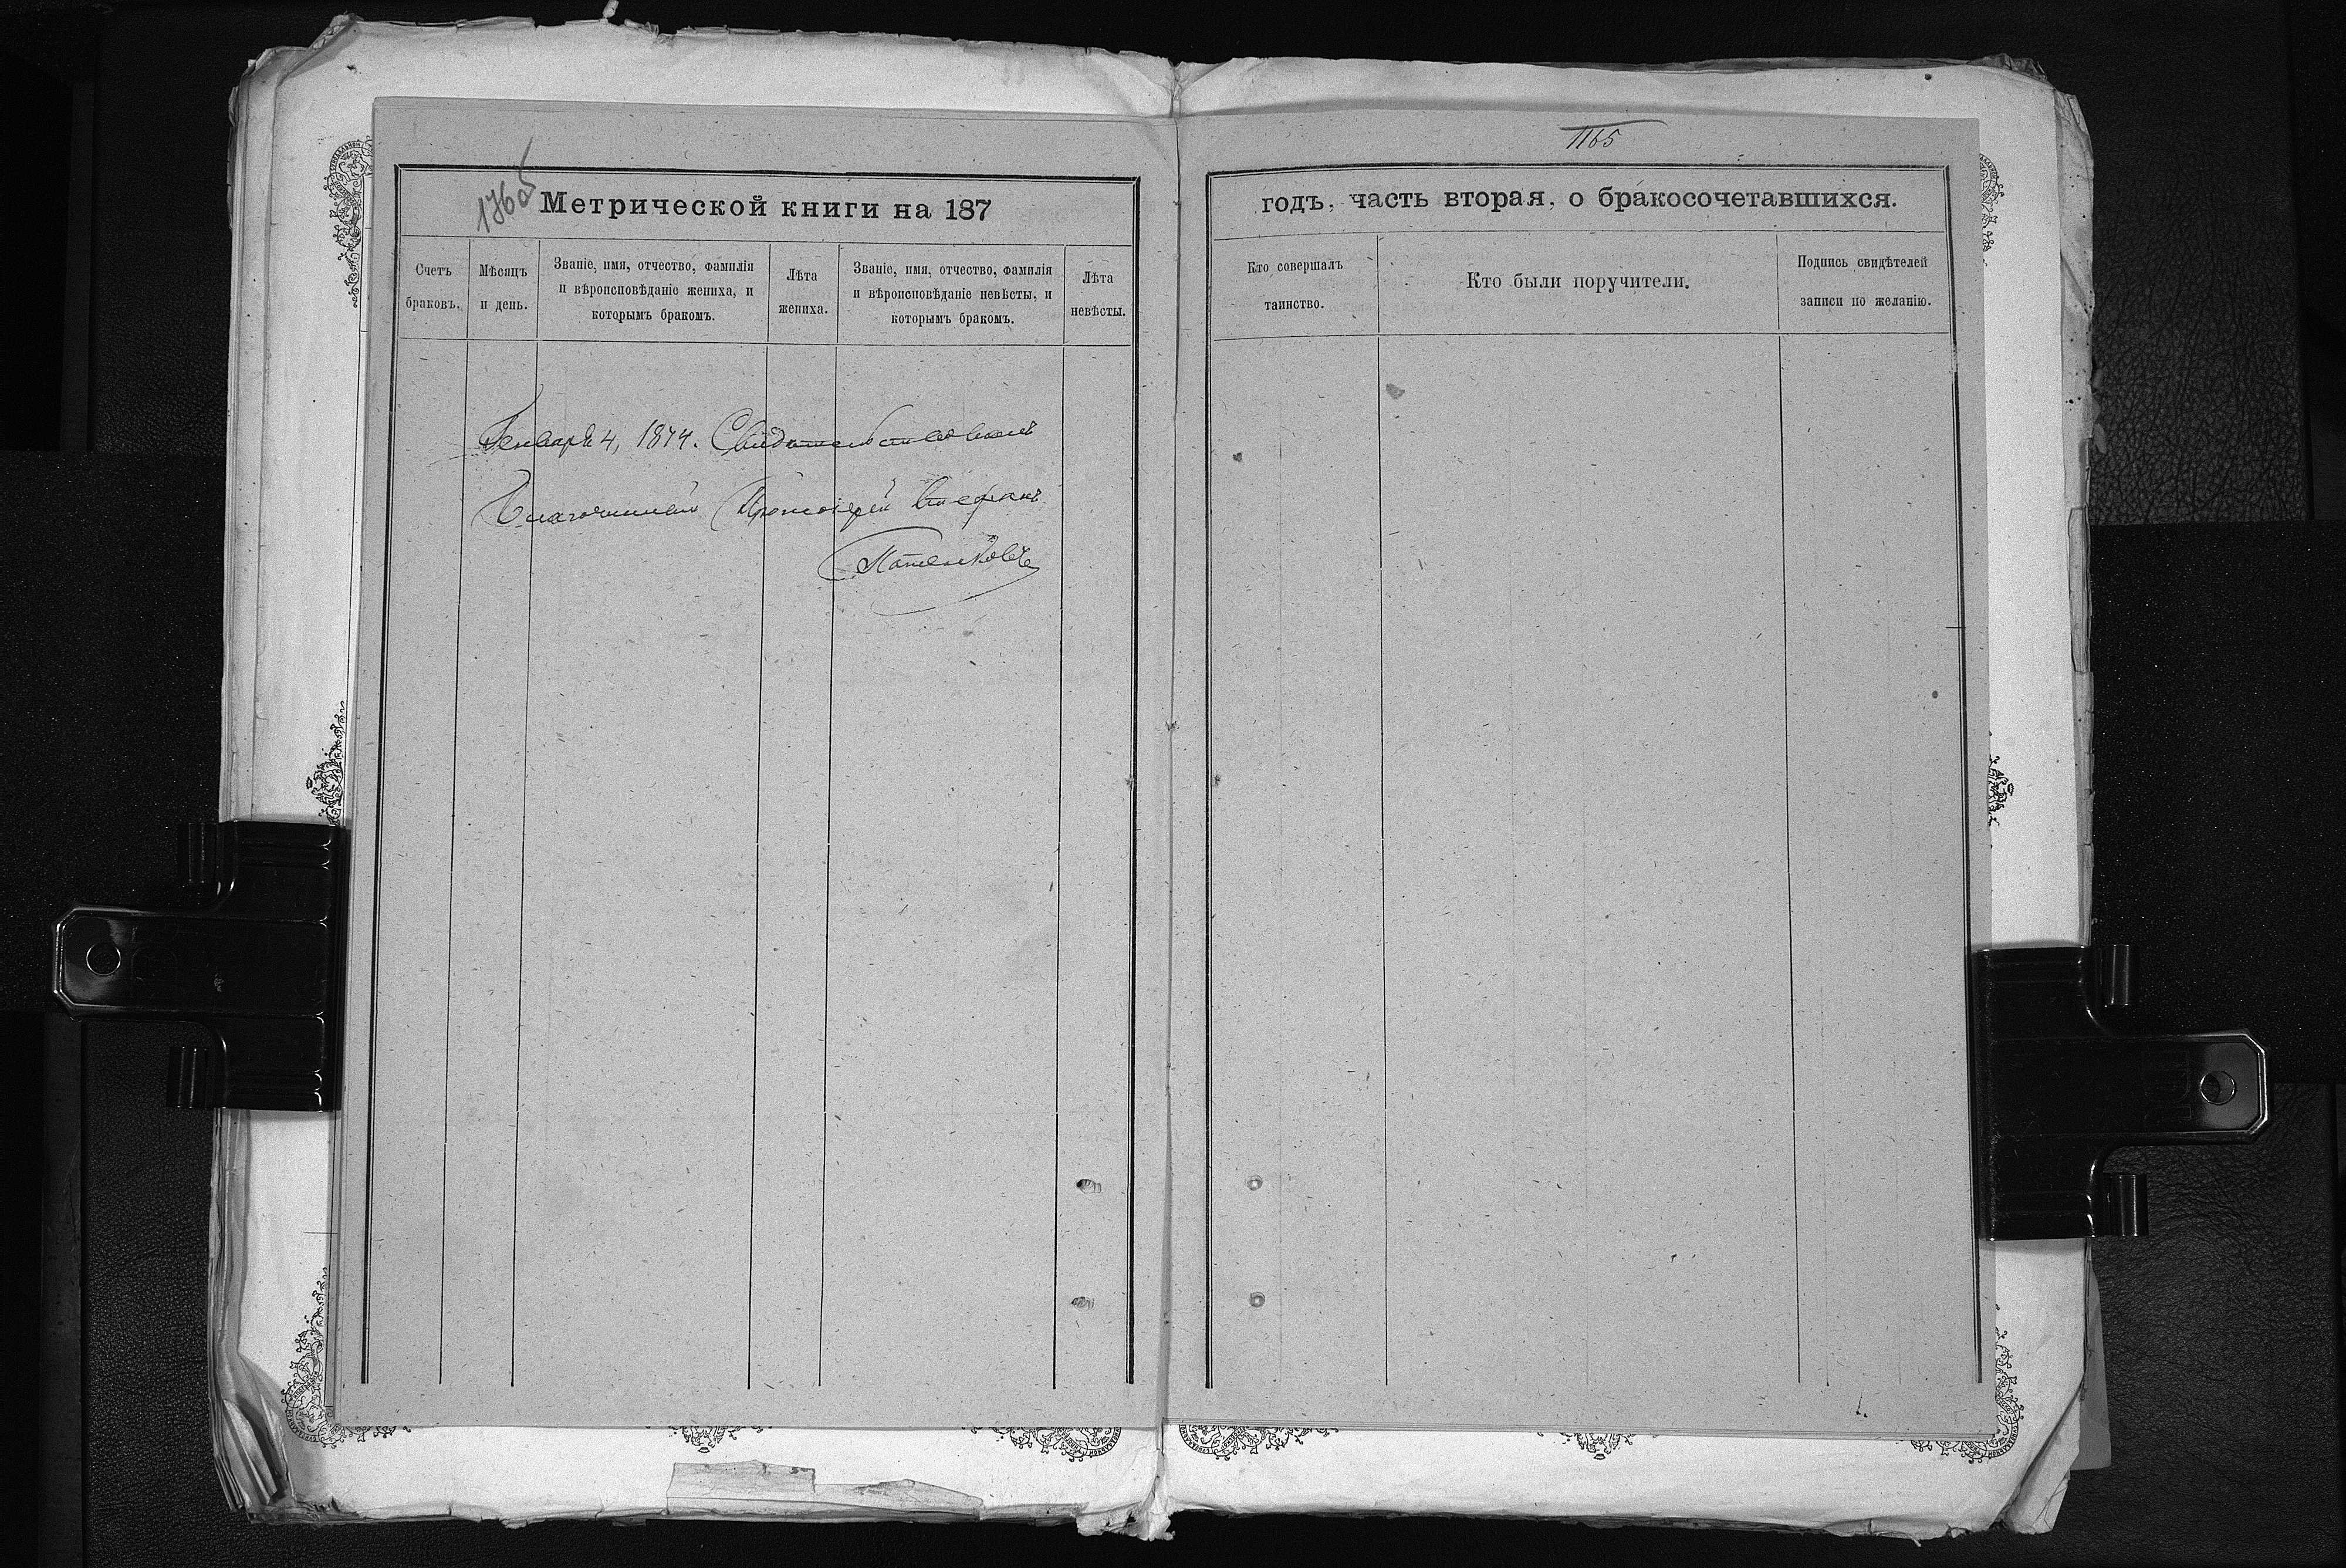 1165
1760б
Метрической книги на 187
годъ, часть вторая, о бракосочетавшихся.
Счетъ браковъ.
Мѣсяцъ и день.
Званіе, имя, отчество, фамилія
и вѣроисповѣданіе жениха, и
которымъ бракомъ.
Лѣта жениха.
Званіе, имя, отчество, фамилія
и вѣроисповѣданіе невѣсты, и
которымъ бракомъ.
Лѣта невѣсты.
Кто совершалъ
таинство.
Кто были поручители.
Подпись свидѣтелей
записи по желанію.
Генваря 4, 1874. Свидетельствовалъ
Благочинный Протоіерей Стефанъ